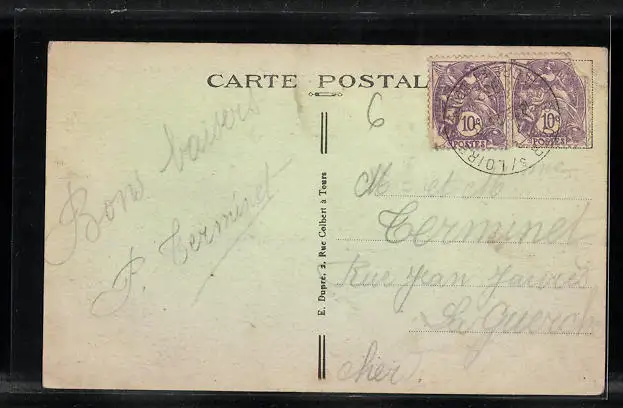 CARTE POSTALE
Bons baisers
P. Terminet
E. Dupré, 2, Rue Colbert à Tours
6
10c 10c
POSTES POSTES
M - et M
Terminet
Rue Jean Jaurès
La Guerche
Cher